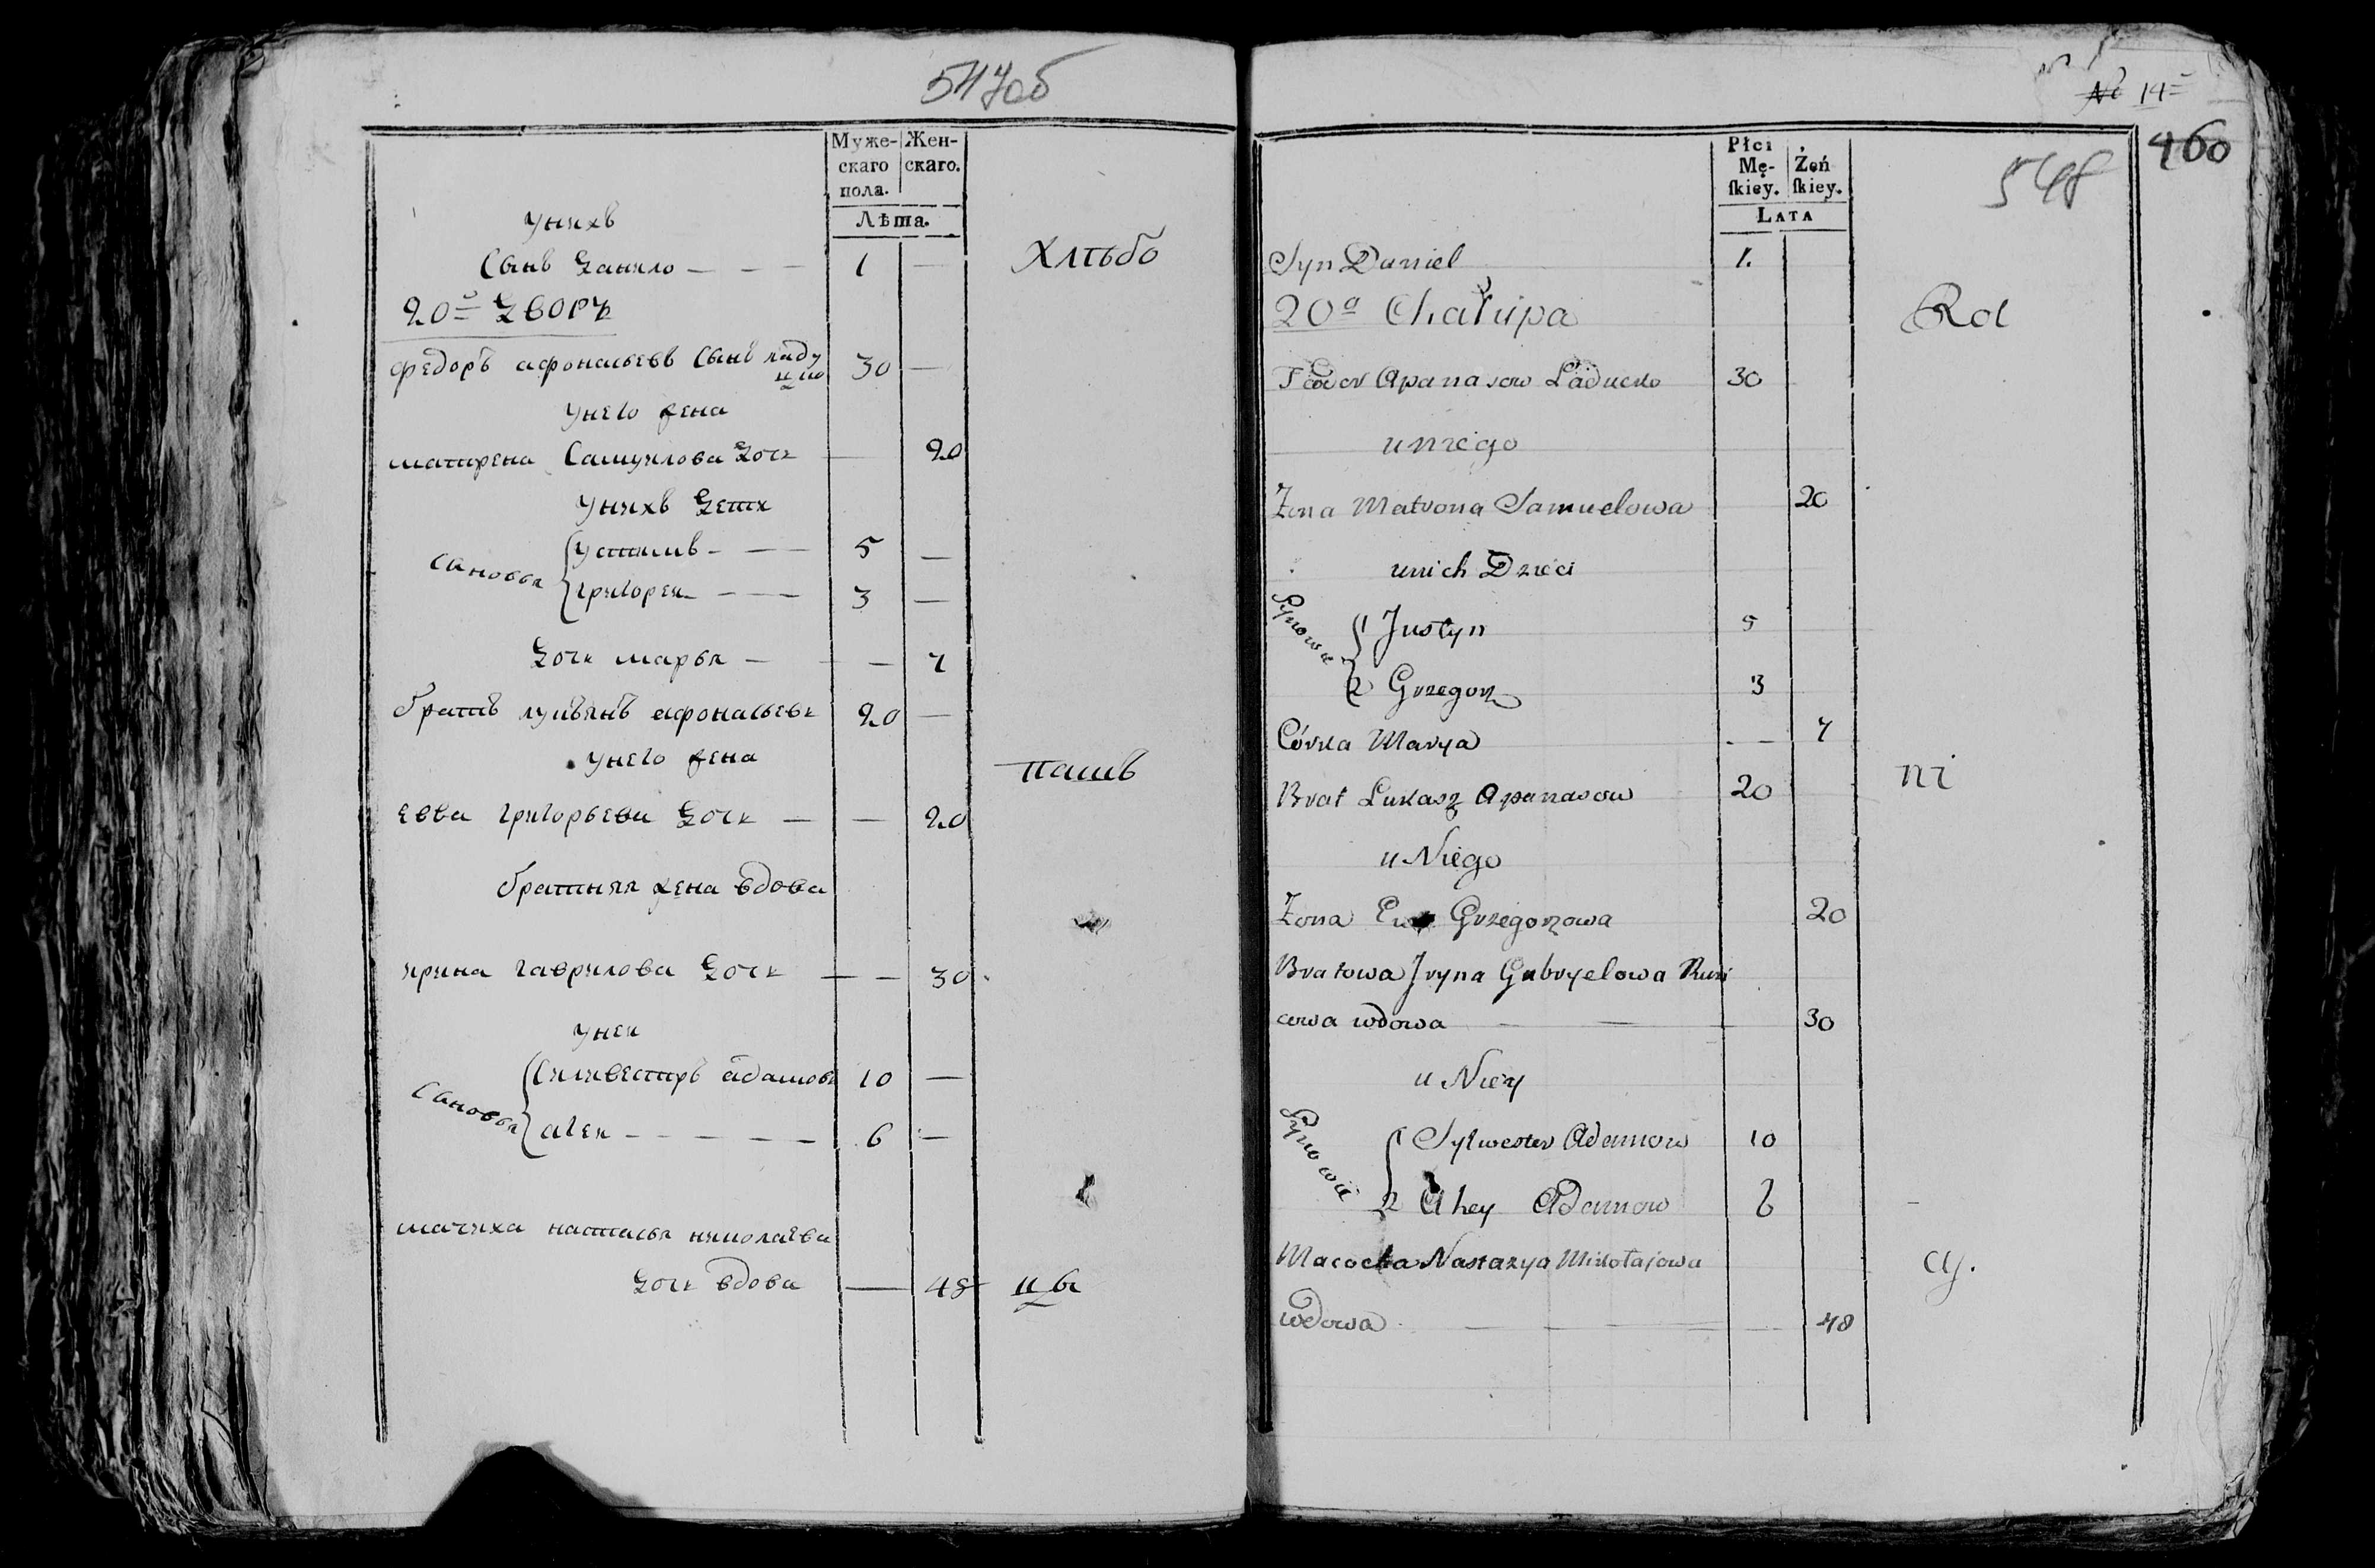 547об
Муже-
скаго
пола.
Жен-
скаго.
Лѣта.
унихъ
Сынъ Данило — — — 1 —
Хлѣбо
20й Дворъ
Федоръ афонасьевъ Сынъ ладу
цко 30 —
унего жена
матрена Самуилова Дочь — 20
унихъ Дети
Сыновья
Устинъ — — — 5 —
григорей — — — 3 —
Дочь марья — — 7
братъ лукьянъ афонасьевъ 20 —
унего жена
пашъ
евва григорьева Дочь — — 20
братняя жена вдова
ирина гаврилова Дочь — — 30
унеи
Сыновья
Силивестръ адамовъ 10 —
агеи — — — — — 6 —
мачиха настасья николаева
Дочь вдова — 48
цы
№ 14
460
548
Płci
Mę-
ſkiey.
Żeń
ſkiey.
Lata
Syn Daniel 1.
20a Chałupa
Rol
Fedor Apanasow Laducko 30
uniego
Zona Matrona Samuelowa 20
unich Dzieci
Synowie
1 Justyn 5
2 Grzegorz 3
Córka Marya — 7
Brat Lukasz Apanasow 20
ni
u Niego
Zona Ewa Grzegorzowa 20
Bratowa Jryna Gabryelowa
wdowa — — 30
u Niey
Synowie
1 Sylwester Adamow 10
2 Ahey Adamow 6
Macocha Nastazya Mikołajowa
cy.
wdowa — — — — 48